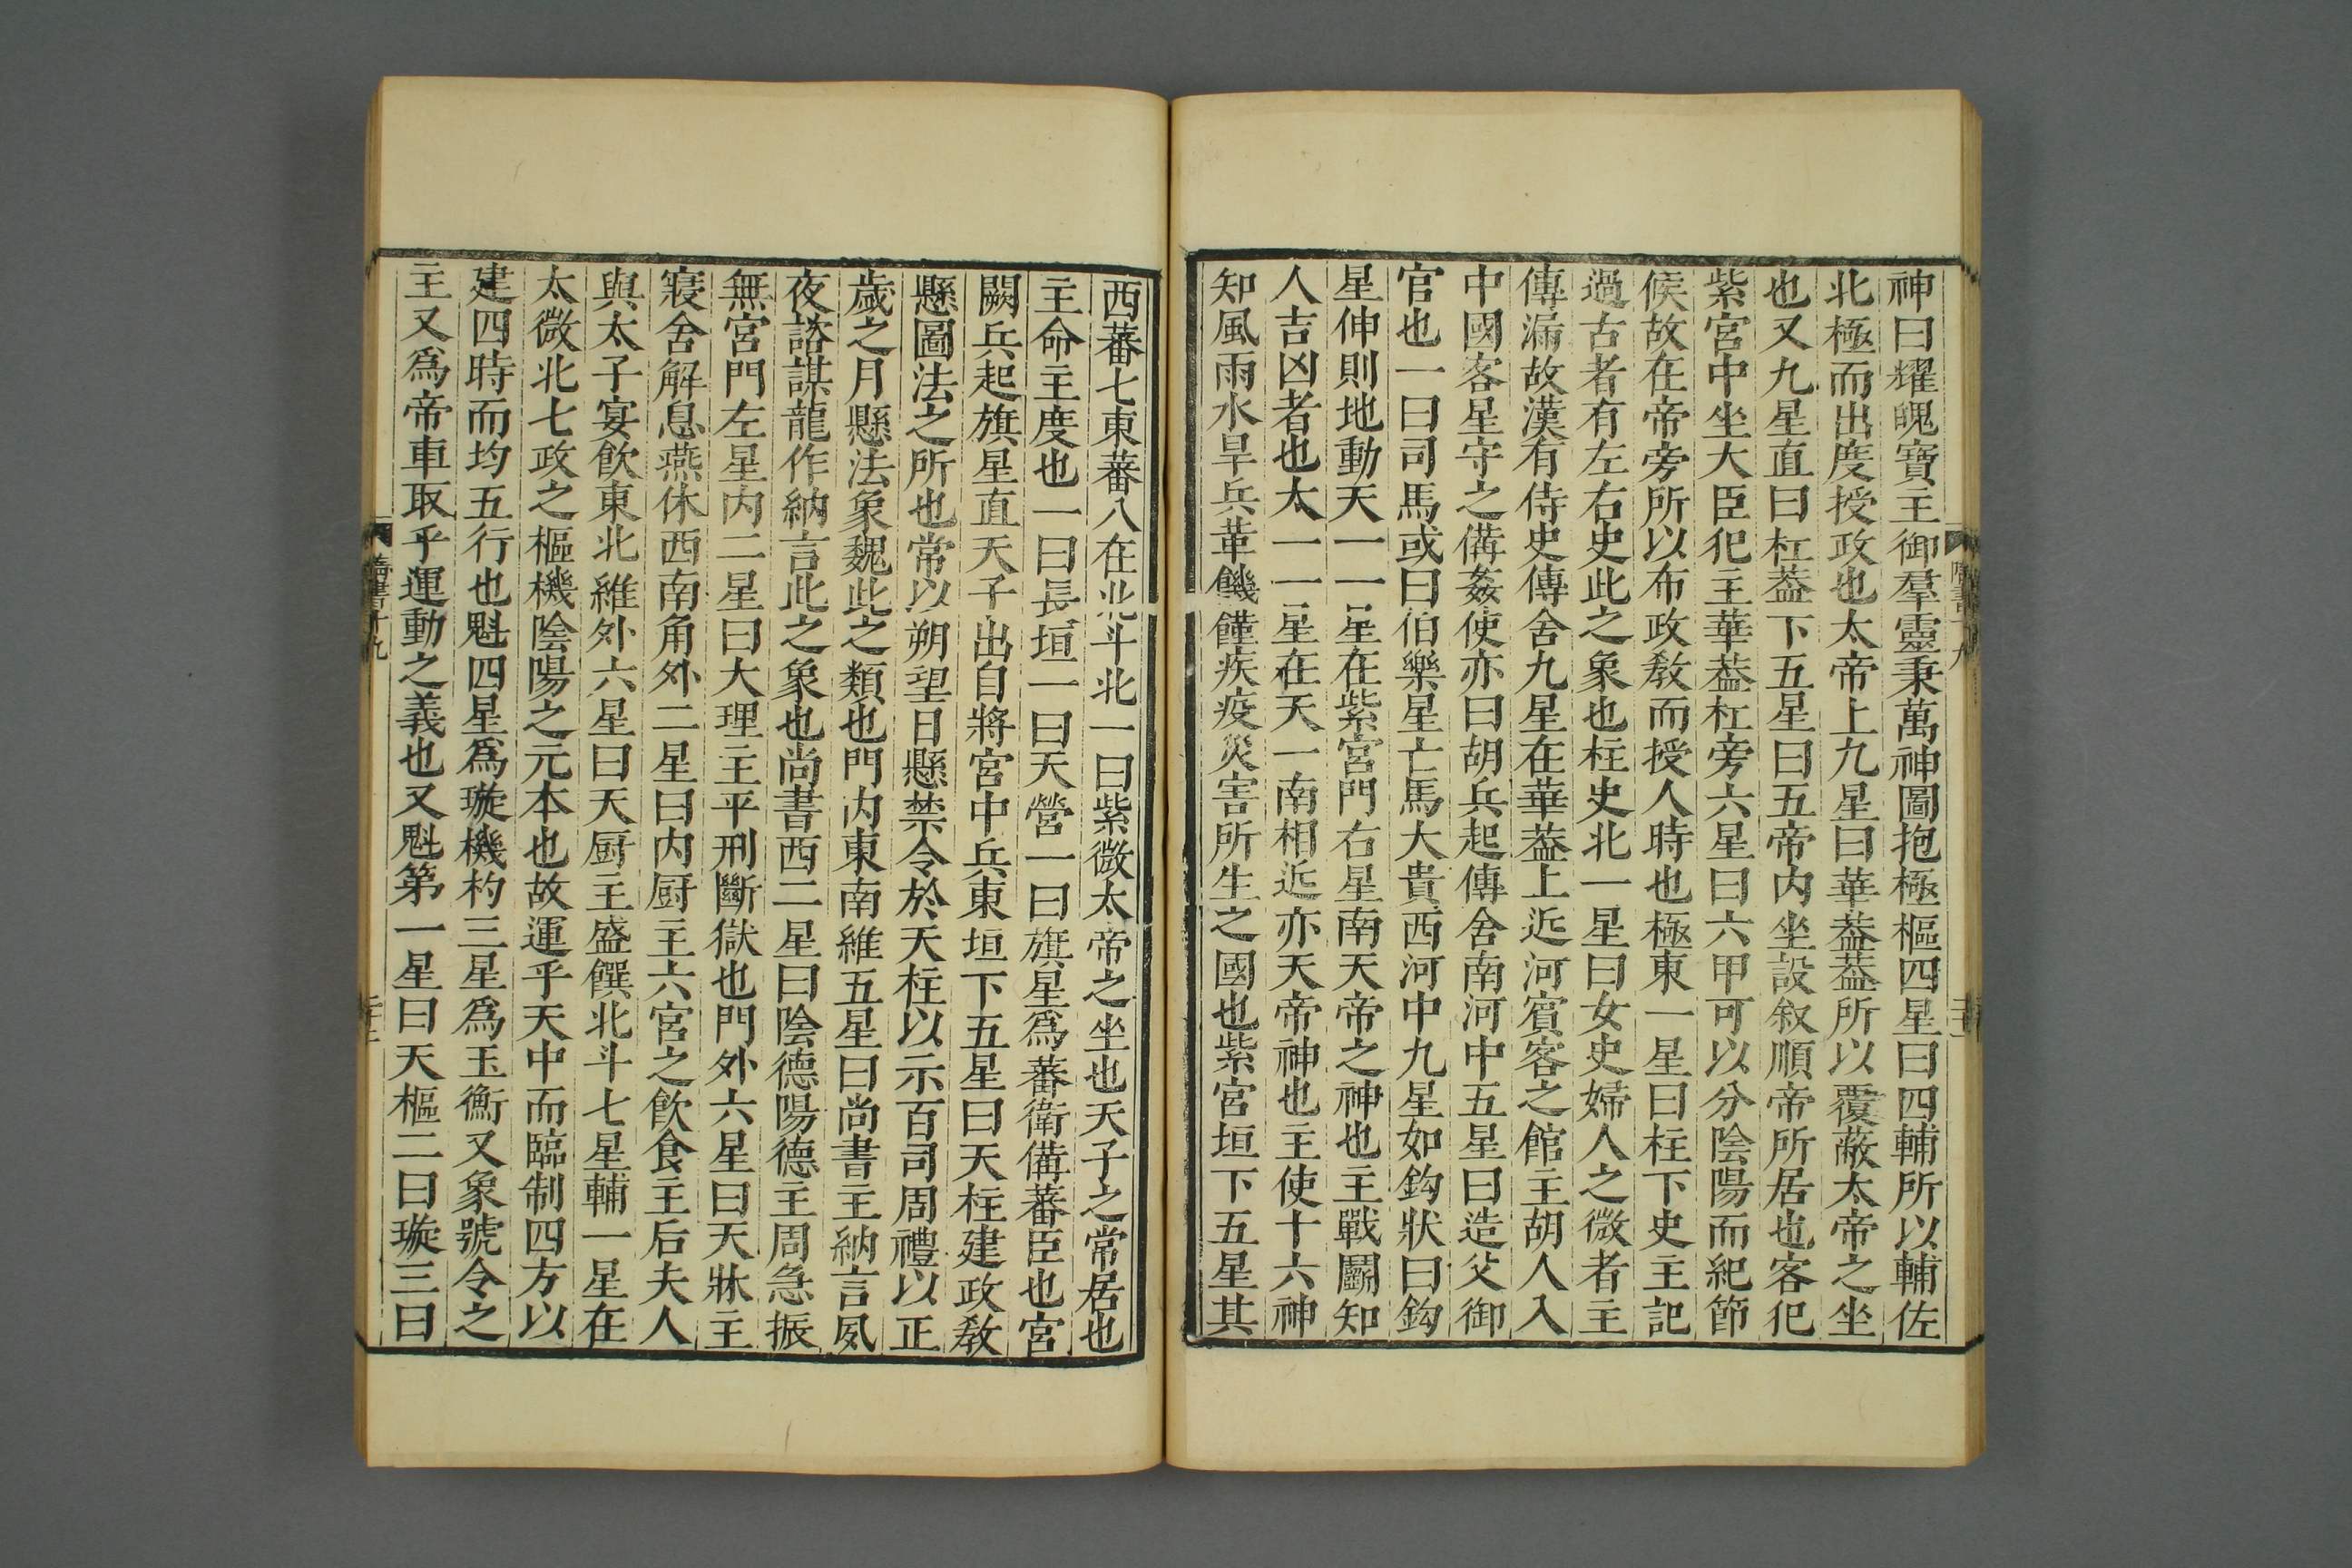 神曰耀魄寶主御羣靈秉萬神圖抱極樞四星曰四輔所以輔佐
北極而出度授政也太帝上九星曰華葢葢所以覆蔽太帝之坐
也又九星直曰杠葢下五星曰五帝内坐設叙順帝所居也客犯
紫宮中坐大臣犯主華葢杠旁六星曰六甲可以分陰陽而紀節
候故在帝旁所以布政敎而授人時也極東一星曰柱下史主記
過古者有左右史此之象也柱史北一星曰女史婦人之微者主
傳漏故漢有侍史傳舍九星在華葢上近河賓客之館主胡人入
中國客星守之備姦使亦曰胡兵起傳舍南河中五星曰造父御
官也一曰司馬或曰伯樂星亡馬大貴西河中九星如鈎狀曰鈎
星伸則地動天一一星在紫宮門右星南天帝之神也主戰鬭知
人吉凶者也太一一星在天一南相近亦天帝神也主使十六神
知風雨水旱兵革饑饉疾疫災害所生之國也紫宮垣下五星其
西蕃七東蕃八在北斗北一曰紫微太帝之坐也天子之常居也
主命主度也一曰長垣一曰天營一曰旗星爲蕃衛備蕃臣也宮
闕兵起旗星直天子出自將宮中兵東垣下五星曰天柱建政敎
懸圖法之所也常以朔望日懸禁令於天柱以示百司周禮以正
歲之月懸法象魏此之類也門内東南維五星曰尚書主納言夙
夜諮謀龍作納言此之象也尚書西二星曰陰德陽德主周急振
無宮門左星内二星曰大理主平刑斷獄也門外六星曰天牀主
寢舍解息燕休西南角外二星曰内厨主六宮之飲食主后夫人
與太子宴飲東北維外六星曰天厨主盛饌北斗七星輔一星在
太微北七政之樞機陰陽之元本也故運乎天中而臨制四方以
建四時而均五行也魁四星爲璇機杓三星爲玉衡又象號令之
主又爲帝車取乎運動之義也又魁第一星曰天樞二曰璇三曰
隋書十九